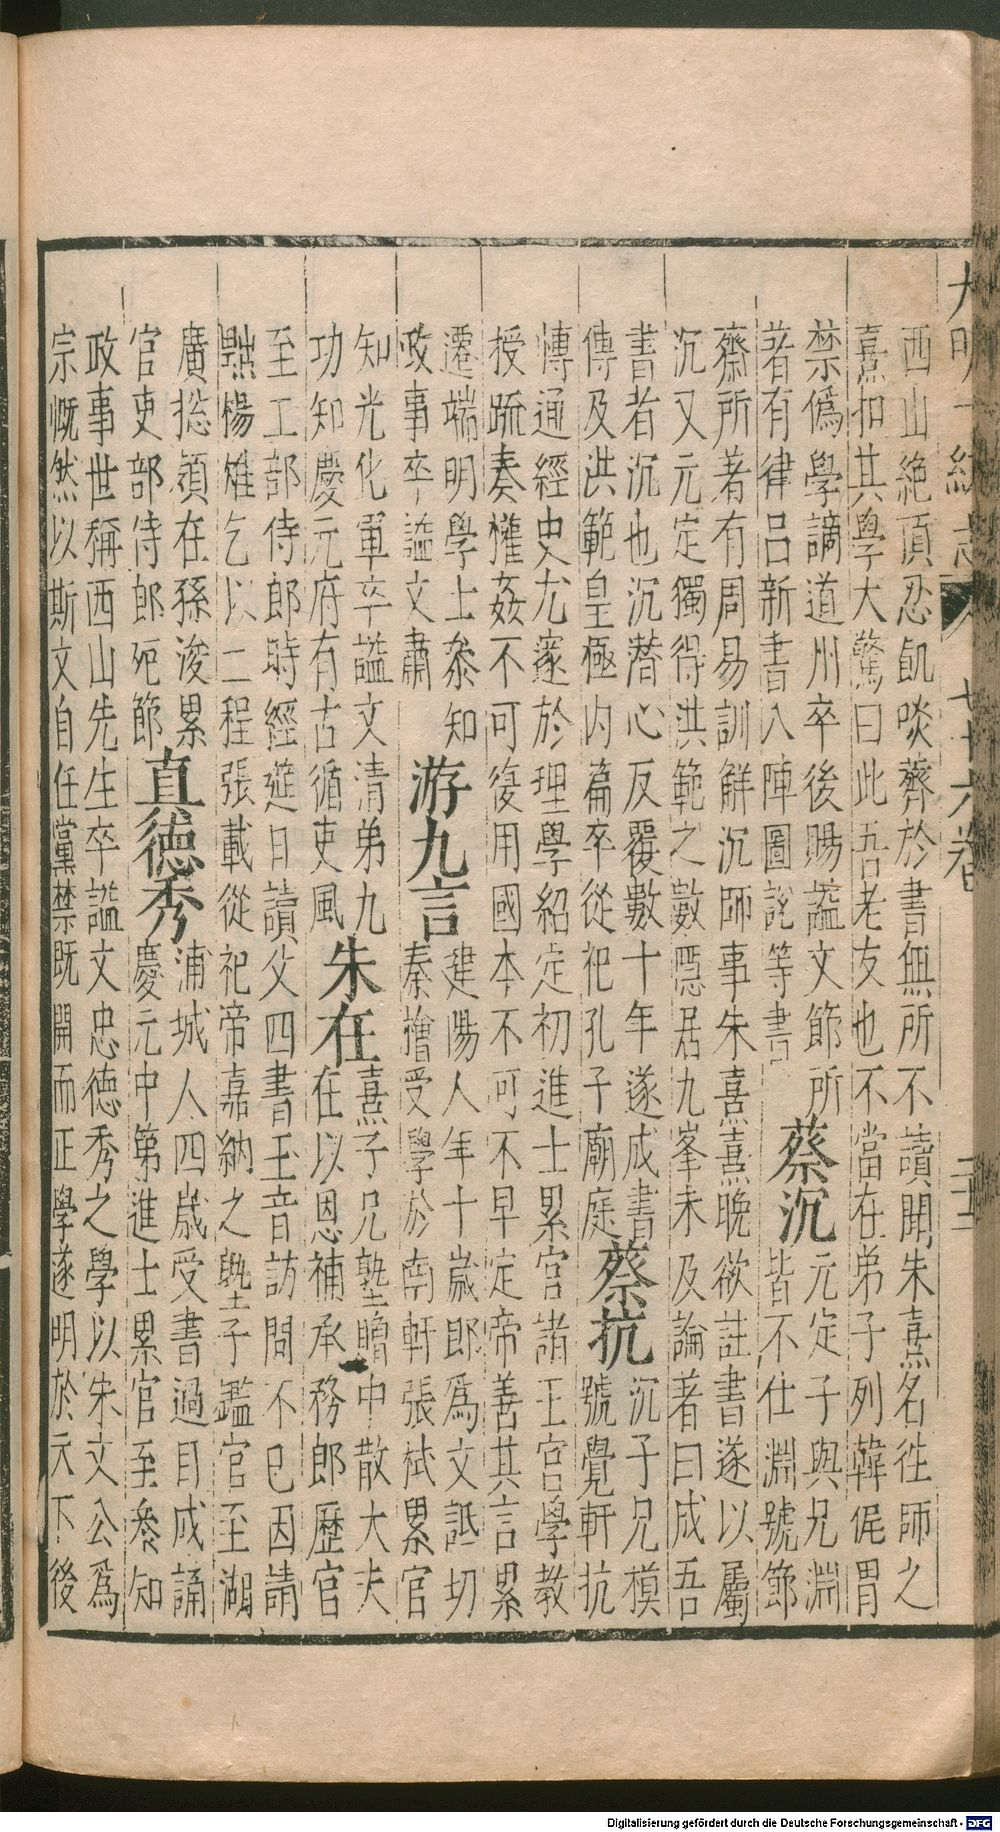 大明一統志 七十六卷 二十二
西山絶頂忍飢啖薺於書無所不讀聞朱熹名徃師之
熹扣其學大驚曰此吾老友也不當在弟子列韓侂胄
禁偽學謫道州卒後賜謚文節所
著有律呂新書八陣圖說等書
蔡沉
元定子與兄淵
皆不仕淵號節
齋所著有周易訓解沉師事朱熹熹晚欲註書遂以屬
沉又元定獨得洪範之數隱居九峯未及論著曰成吾
書者沉也沉潛心反覆數十年遂成書
傳及洪範皇極内篇卒從祀孔子廟庭
蔡抗
沉子兄模
號覺軒抗
博通經史尤邃於理學紹定初進士累官諸王宮學教
授䟽奏權姦不可復用國本不可不早定帝善其言累
遷端明學士叅知
政事卒謚文肅
游九言
建陽人年十歲郎為文詆切
秦檜受學於南軒張栻累官
知光化軍卒謚文清弟九
功知慶元府有古循吏風
朱在
熹子兄塾贈中散大夫
在以恩補承務郎歷官
至工部侍郎時經進日讀父四書玉音訪問不已因請
黜楊雄乞以二程張載從祀帝嘉納之塾子鑑官至湖
廣捴領在孫浚累
官吏部侍郎死節
直德秀
浦城人四歲受書過目成誦
慶元中第進士累官至叅知
政事世稱西山先生卒謚文忠德秀之學以朱文公為
宗慨然以斯文自任黨禁既開而正學遂明於天下後
Digitalisierung gefördert durch die Deutsche Forschungsgemeinschaft - DFG